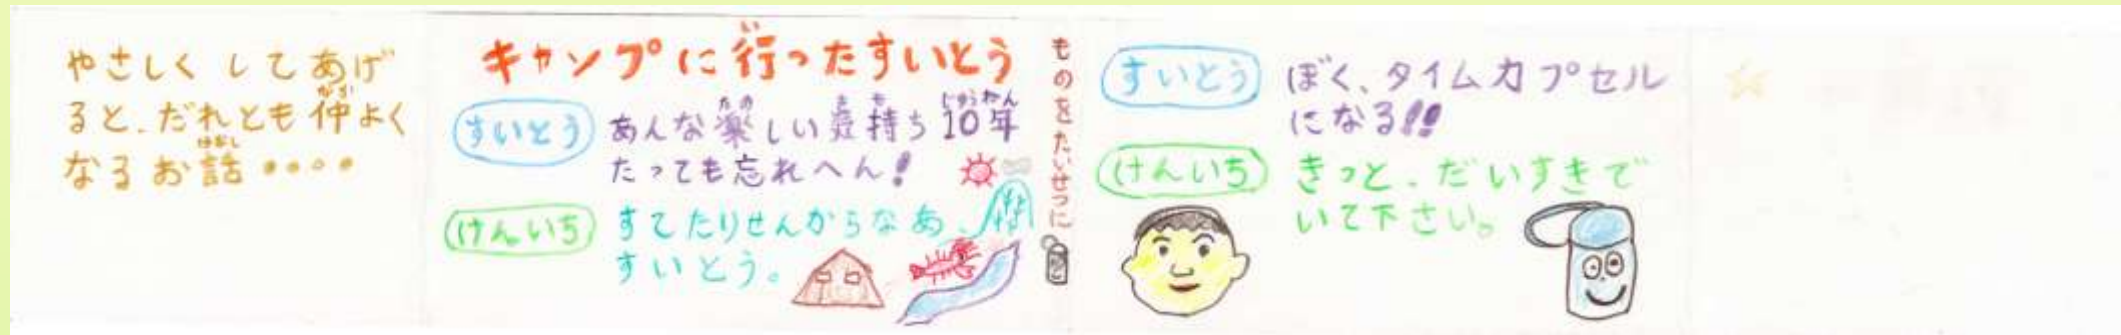 やさしくしてあげ
ると、だれとも仲よく
なか
なるお話・・・・
はなし
キャンプに行ったすいとう
い
すいとう
あんな楽しい気持ち10年
たの
き も
じゅうねん
たっても忘れへん!
けんいち
すてたりせんからなあ、
すいとう。
ものをたいせつに
すいとう
ぼく、タイムカプセル
になる!!
けんいち
きっと、だいすきで
いて下さい。